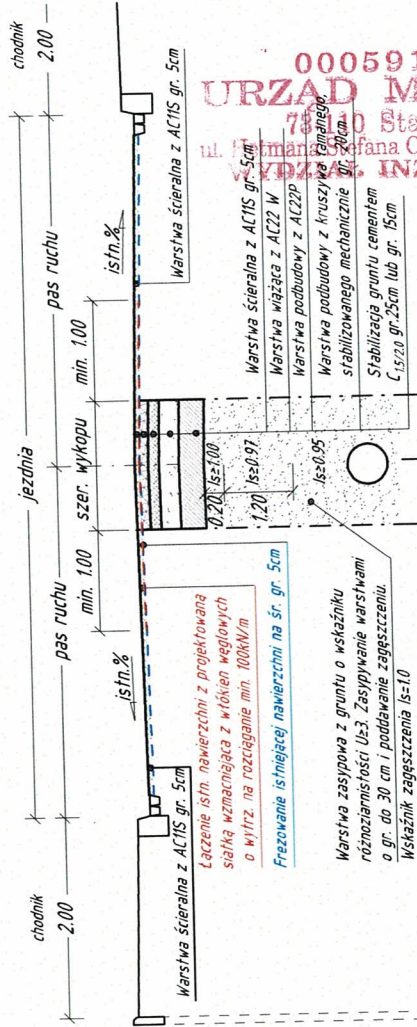 chodnik
2.00
jezdnia
pas ruchu
pas ruchu
min. 1.00
szer. wykopu
min. 1.00
chodnik
2.00
istn.%
istn.%
Warstwa ścieralna z AC11S gr. 5cm
Łączenie istn. nawierzchni z projektowaną
siatką wzmacniająca z włókien węglowych
o wytrz. na rozciąganie min. 100kN/m
Frezowanie istniejącej nawierzchni na śr. gr. 5cm
Warstwa zasypowa z gruntu o wskaźniku
różnoziarnistości U≥3. Zasypywanie warstwami
o gr. do 30 cm i poddawanie zagęszczeniu.
Wskaźnik zagęszczenia Is=1.0
0.20
Is≥1.00
1.20
Is≥0.97
Is≥0.95
Warstwa ścieralna z AC11S gr. 5cm
Warstwa ścieralna z AC11S gr. 5cm
Warstwa wiążąca z AC22 W
Warstwa podbudowy z AC22P
Warstwa podbudowy z kruszywa łamanego,
stabilizowanego mechanicznie gr. 20cm
Stabilizacja gruntu cementem
C1.5/2.0 gr.25cm lub gr. 15cm
000591
URZĄD M
73-110 Sta
ul. Hetmana Stefana C
WYDZIAŁ INŻ